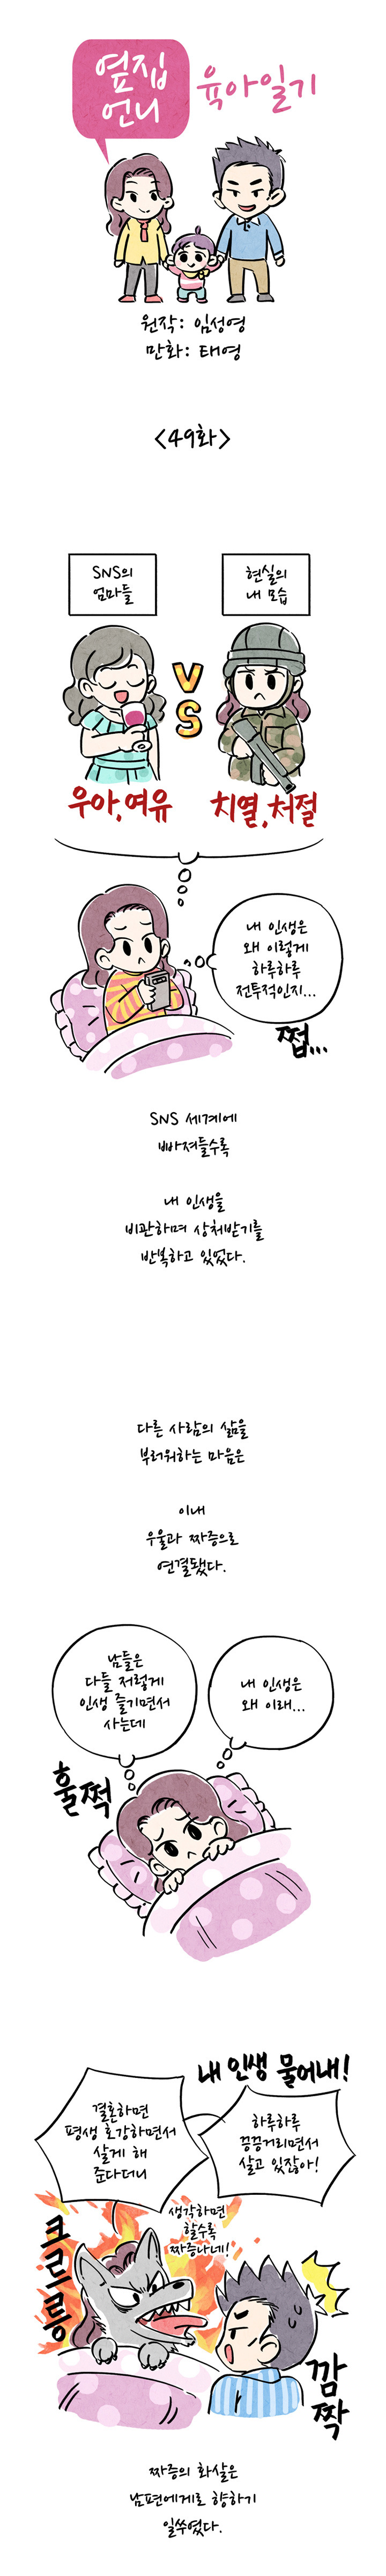 옆집
언니
육아일기
원작: 임성영
만화: 태영
<49화>
SNS의
엄마들
현실의
내 모습
VS
우아,여유
치열,처절
내 인생은
왜 이렇게
하루하루
전투적인지...
쩝...
SNS 세계에
빠져들수록
내 인생을
비관하며 상처받기를
반복하고 있었다.
다른 사람의 삶을
부러워하는 마음은
이내
우울과 짜증으로
연결됐다.
남들은
다들 저렇게
인생 즐기면서
사는데
내 인생은
왜 이래...
훌쩍
내 인생 물어내!
결혼하면
평생 호강하면서
살게 해
준다더니
하루하루
끙끙거리면서
살고 있잖아!
생각하면
할수록
짜증나네!
크르르릉
깜짝
짜증의 화살은
남편에게로 향하기
일쑤였다.